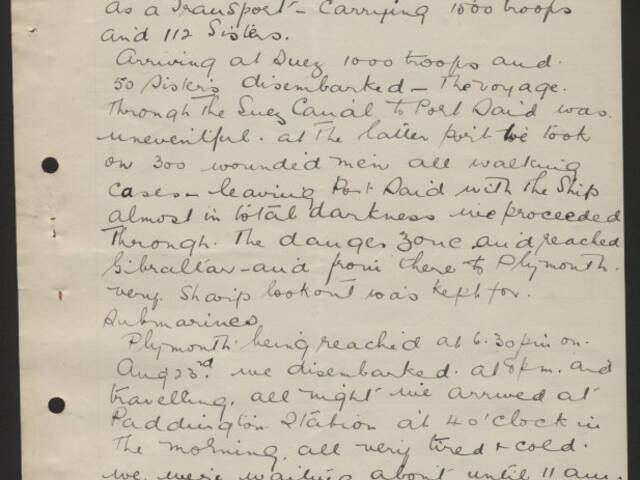 as a Transport - Carrying 1500 troops
and 112 Sisters.
Arriving at Suez 1000 troops and
50 Sisters disembarked - The voyage
Through the Suez Canal to Port Said was
uneventful. at the latter port we took
on 300 wounded men all walking
cases - leaving Port Said with the Ship
almost in total darkness we proceeded
Through. The danger zone and reached
Gibraltar - and from there to Plymouth.
very. Sharp lookout was kept for.
Submarines
Plymouth being reached at 6.30 pm on.
Aug 23rd. we disembarked. at 8 pm. and
travelling, all night we arrived at
Paddington Station at 4 o'clock in
The morning, all very tired & cold.
we were waiting about until 11 am.